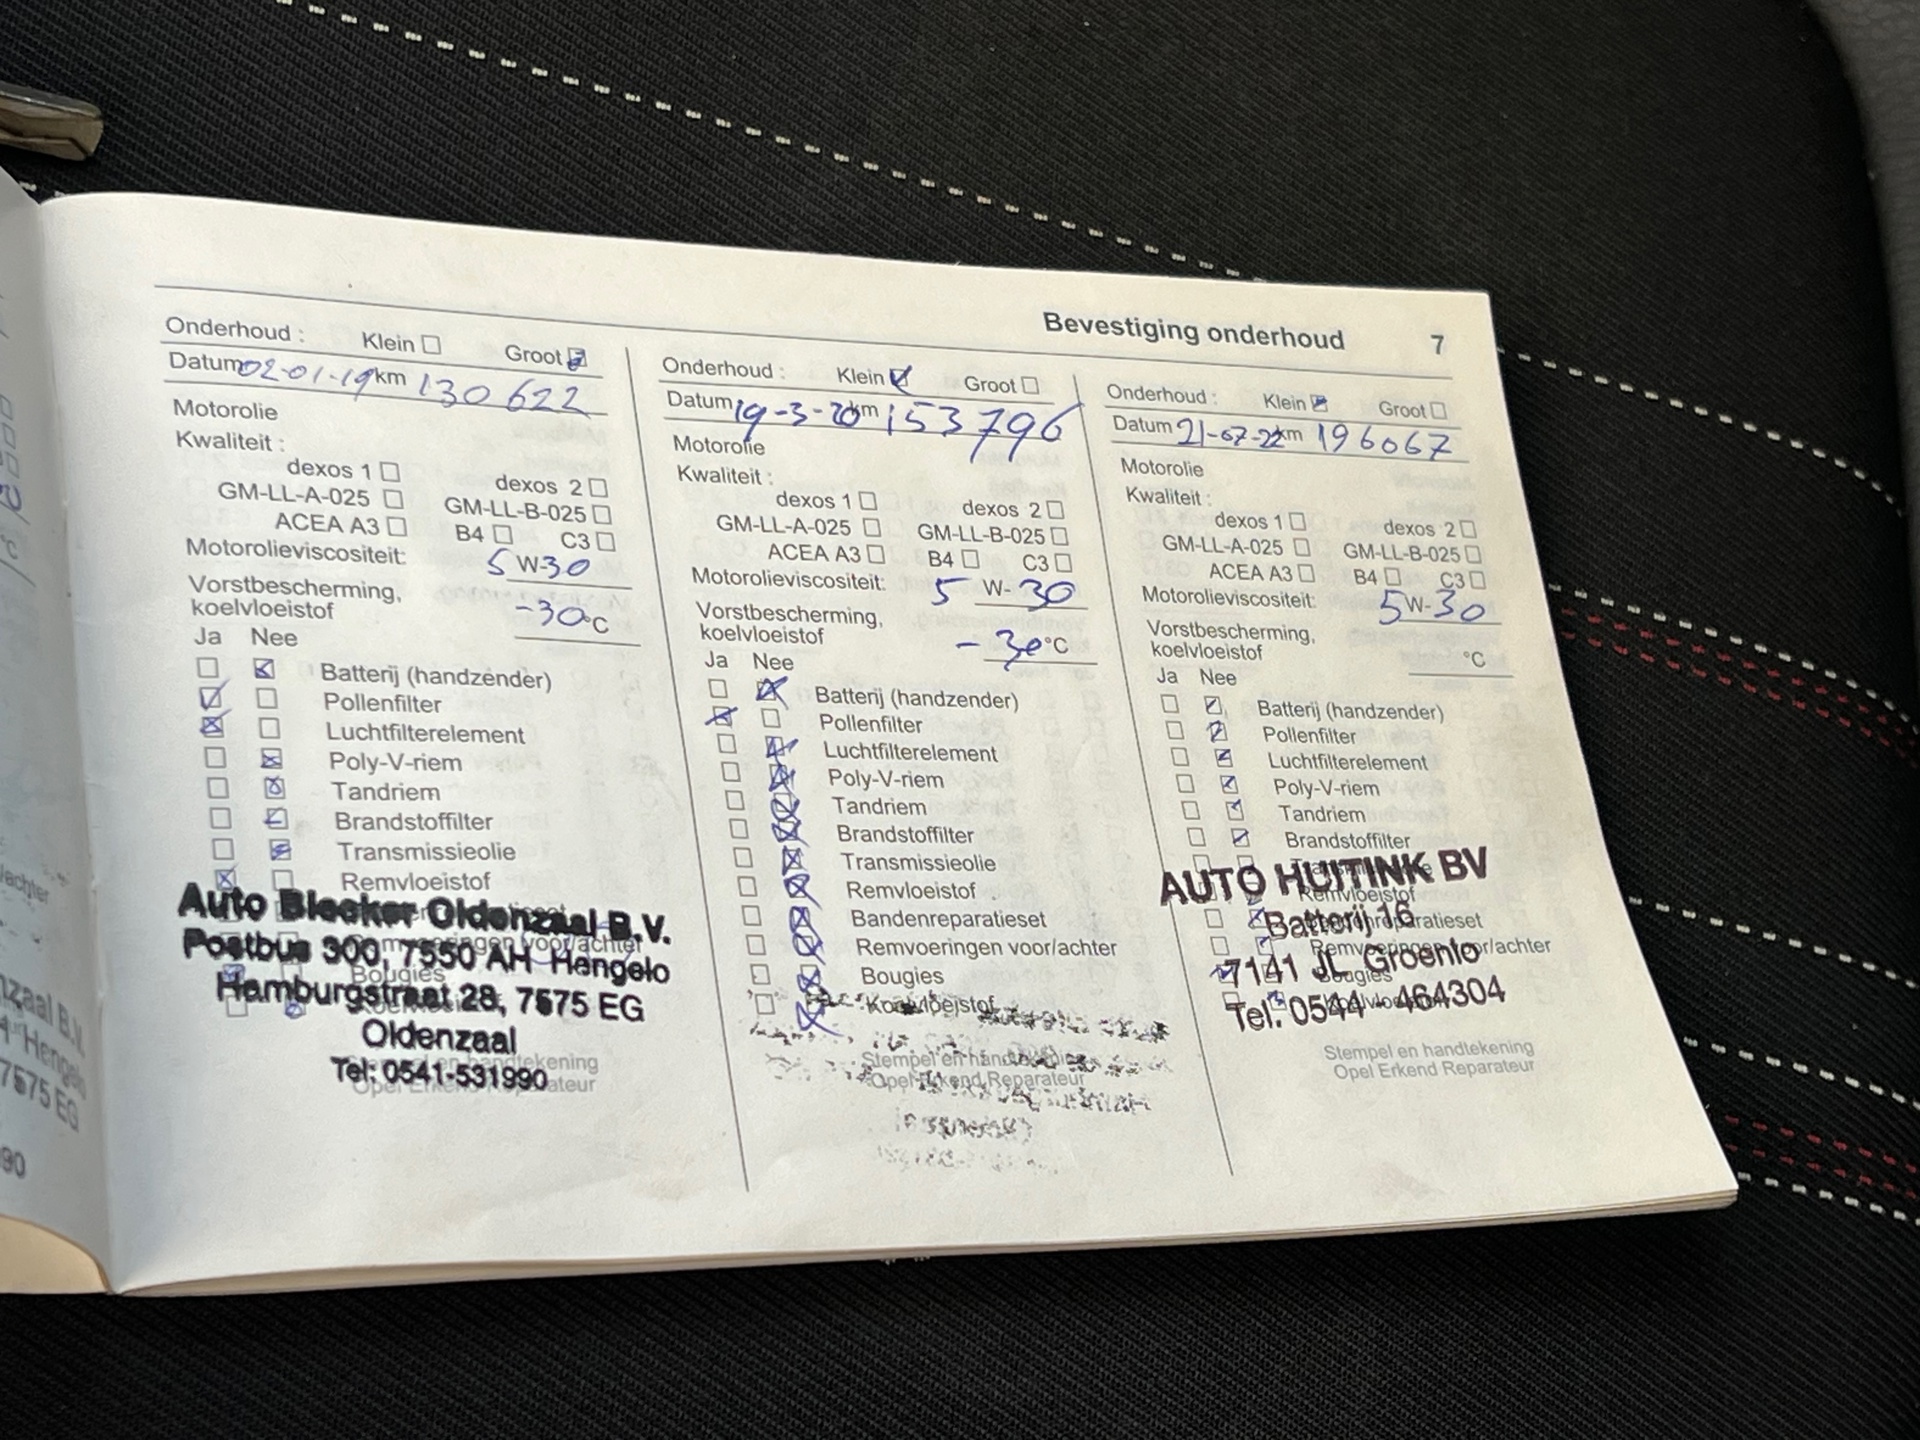 Bevestiging onderhoud 7
Onderhoud : Klein Groot
Datum 02-01-19 km 130622
Motorolie
Kwaliteit :
dexos 1 dexos 2
GM-LL-A-025 GM-LL-B-025
ACEA A3 B4 C3
Motorolieviscositeit: 5 W-30
Vorstbescherming,
koelvloeistof -30 °C
Ja Nee
Batterij (handzender)
Pollenfilter
Luchtfilterelement
Poly-V-riem
Tandriem
Brandstoffilter
Transmissieolie
Remvloeistof
Auto Bleeker Oldenzaal B.V.
Postbus 300, 7550 AH Hengelo
Bougies
Hamburgstraat 28, 7575 EG
Oldenzaal
Tel: 0541-531990
Onderhoud : Klein Groot
Datum 19-3-20 km 153796
Motorolie
Kwaliteit :
dexos 1 dexos 2
GM-LL-A-025 GM-LL-B-025
ACEA A3 B4 C3
Motorolieviscositeit: 5 W-30
Vorstbescherming,
koelvloeistof -30 °C
Ja Nee
Batterij (handzender)
Pollenfilter
Luchtfilterelement
Poly-V-riem
Tandriem
Brandstoffilter
Transmissieolie
Remvloeistof
Bandenreparatieset
Remvoeringen voor/achter
Bougies
Koelvloeistof
Stempel en handtekening
Opel Erkend Reparateur
Onderhoud : Klein Groot
Datum 21-07-22 km 196067
Motorolie
Kwaliteit :
dexos 1 dexos 2
GM-LL-A-025 GM-LL-B-025
ACEA A3 B4 C3
Motorolieviscositeit: 5 W-30
Vorstbescherming,
koelvloeistof °C
Ja Nee
Batterij (handzender)
Pollenfilter
Luchtfilterelement
Poly-V-riem
Tandriem
Brandstoffilter
AUTO HUITINK BV
Remvloeistof
Batterij 16
Bandenreparatieset
Remvoeringen voor/achter
7141 JL Groenlo
Bougies
Koelvloeistof
Tel. 0544 - 464304
Stempel en handtekening
Opel Erkend Reparateur